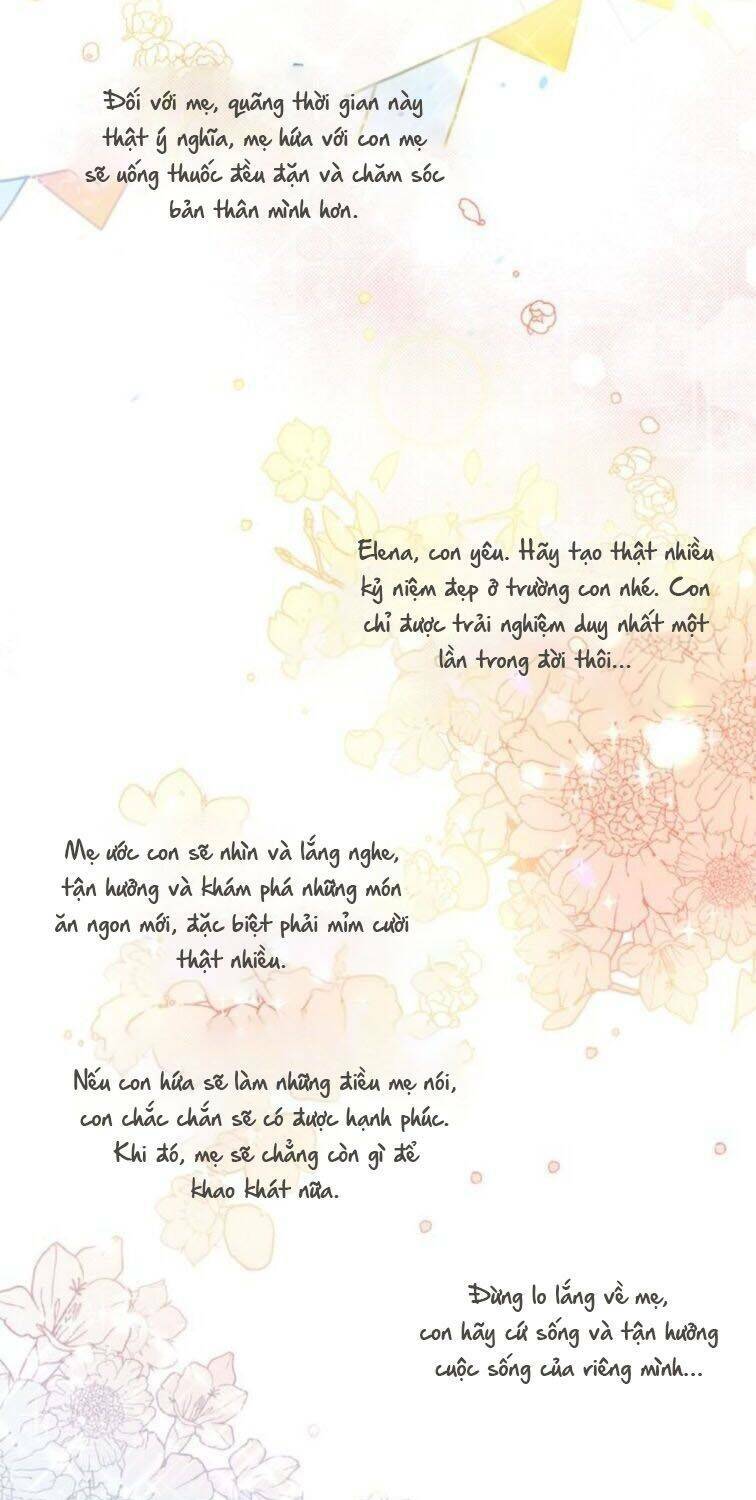 Đối với mẹ, quãng thời gian này
thật ý nghĩa, mẹ hứa với con mẹ
sẽ uống thuốc đều đặn và chăm sóc
bản thân mình hơn.
Elena, con yêu. Hãy tạo thật nhiều
kỷ niệm đẹp ở trường con nhé. Con
chỉ được trải nghiệm duy nhất một
lần trong đời thôi...
Mẹ ước con sẽ nhìn và lắng nghe,
tận hưởng và khám phá những món
ăn ngon mới, đặc biệt phải mỉm cười
thật nhiều.
Nếu con hứa sẽ làm những điều mẹ nói,
con chắc chắn sẽ có được hạnh phúc.
Khi đó, mẹ sẽ chẳng còn gì để
khao khát nữa.
Đừng lo lắng về mẹ,
con hãy cứ sống và tận hưởng
cuộc sống của riêng mình...